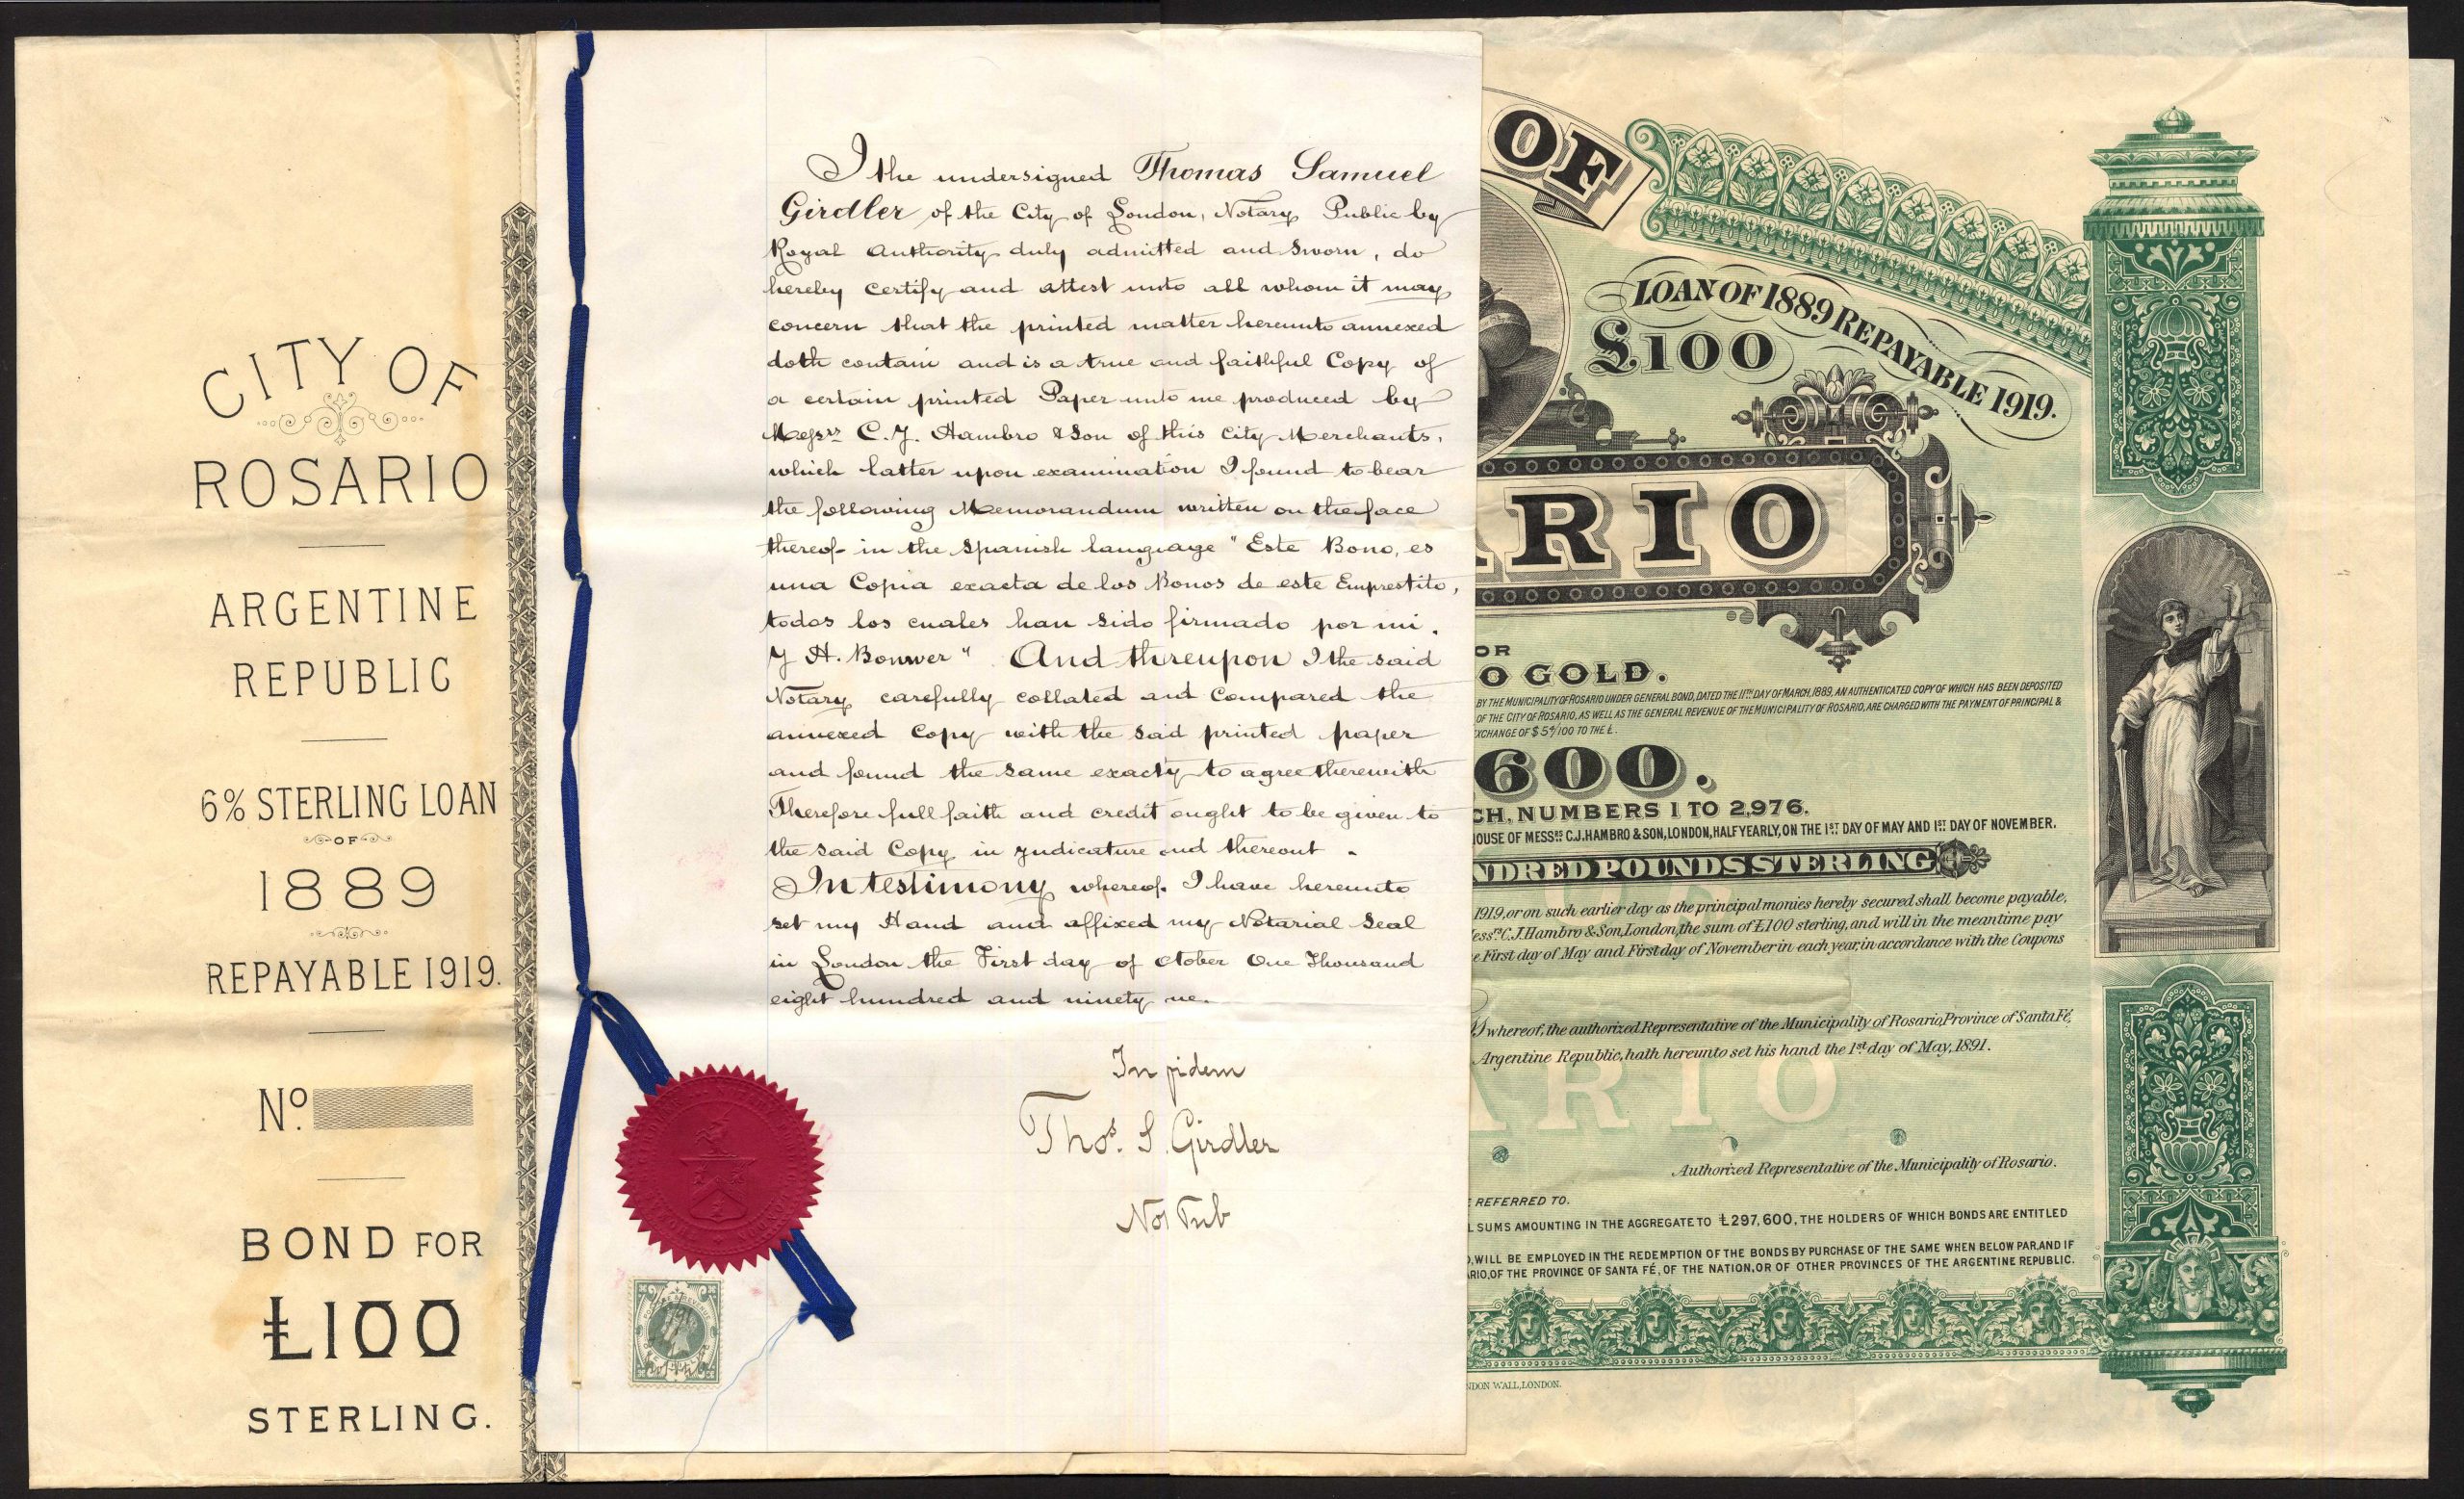 CITY OF
ROSARIO
ARGENTINE
REPUBLIC
6% STERLING LOAN
OF
1889
REPAYABLE 1919.
No.
BOND FOR
£100
STERLING.
I the undersigned Thomas Samuel
Girdler of the City of London, Notary Public by
Royal Authority duly admitted and sworn, do
hereby certify and attest unto all whom it may
concern that the printed matter hereunto annexed
doth contain and is a true and faithful Copy of
a certain printed Paper unto me produced by
Messrs C. J. Hambro & Son of this City Merchants,
which latter upon examination I found to bear
the following Memorandum written on the face
thereof in the Spanish language "Este Bono, es
una Copia exacta de los Bonos de este Emprestito,
todos los cuales han sido firmado por mi.
J H. Bouwer" And threupon I the said
Notary carefully collated and Compared the
annexed Copy with the said printed paper
and found the same exactly to agree therewith
Therefore full faith and credit ought to be given to
the said Copy in Judicature and thereout.
In testimony whereof I have hereunto
set my Hand and affixed my Notarial Seal
in London the First day of October One Thousand
eight hundred and ninety one.
In fidem
Thos. S. Girdler
Not Pub
OF
LOAN OF 1889 REPAYABLE 1919.
£100
RIO
OR
O GOLD.
BY THE MUNICIPALITY OF ROSARIO UNDER GENERAL BOND, DATED THE 11TH DAY OF MARCH, 1889, AN AUTHENTICATED COPY OF WHICH HAS BEEN DEPOSITED
OF THE CITY OF ROSARIO, AS WELL AS THE GENERAL REVENUE OF THE MUNICIPALITY OF ROSARIO, ARE CHARGED WITH THE PAYMENT OF PRINCIPAL &
XCHANGE OF $ 5 4/100 TO THE £.
600.
CH, NUMBERS 1 TO 2,976.
OUSE OF MESSRS C.J. HAMBRO & SON, LONDON, HALF YEARLY, ON THE 1ST DAY OF MAY AND 1ST DAY OF NOVEMBER.
NDRED POUNDS STERLING
1919, or on such earlier day as the principal monies hereby secured shall become payable,
essrs C.J. Hambro & Son, London, the sum of £100 sterling, and will in the meantime pay
e First day of May and First day of November in each year, in accordance with the Coupons
y whereof, the authorized Representative of the Municipality of Rosario, Province of Santa Fé,
Argentine Republic, hath hereunto set his hand the 1st day of May, 1891.
ARIO
Authorized Representative of the Municipality of Rosario.
E REFERRED TO.
L SUMS AMOUNTING IN THE AGGREGATE TO £297,600, THE HOLDERS OF WHICH BONDS ARE ENTITLED
D, WILL BE EMPLOYED IN THE REDEMPTION OF THE BONDS BY PURCHASE OF THE SAME WHEN BELOW PAR, AND IF
RIO, OF THE PROVINCE OF SANTA FÉ, OF THE NATION, OR OF OTHER PROVINCES OF THE ARGENTINE REPUBLIC.
NDON WALL, LONDON.